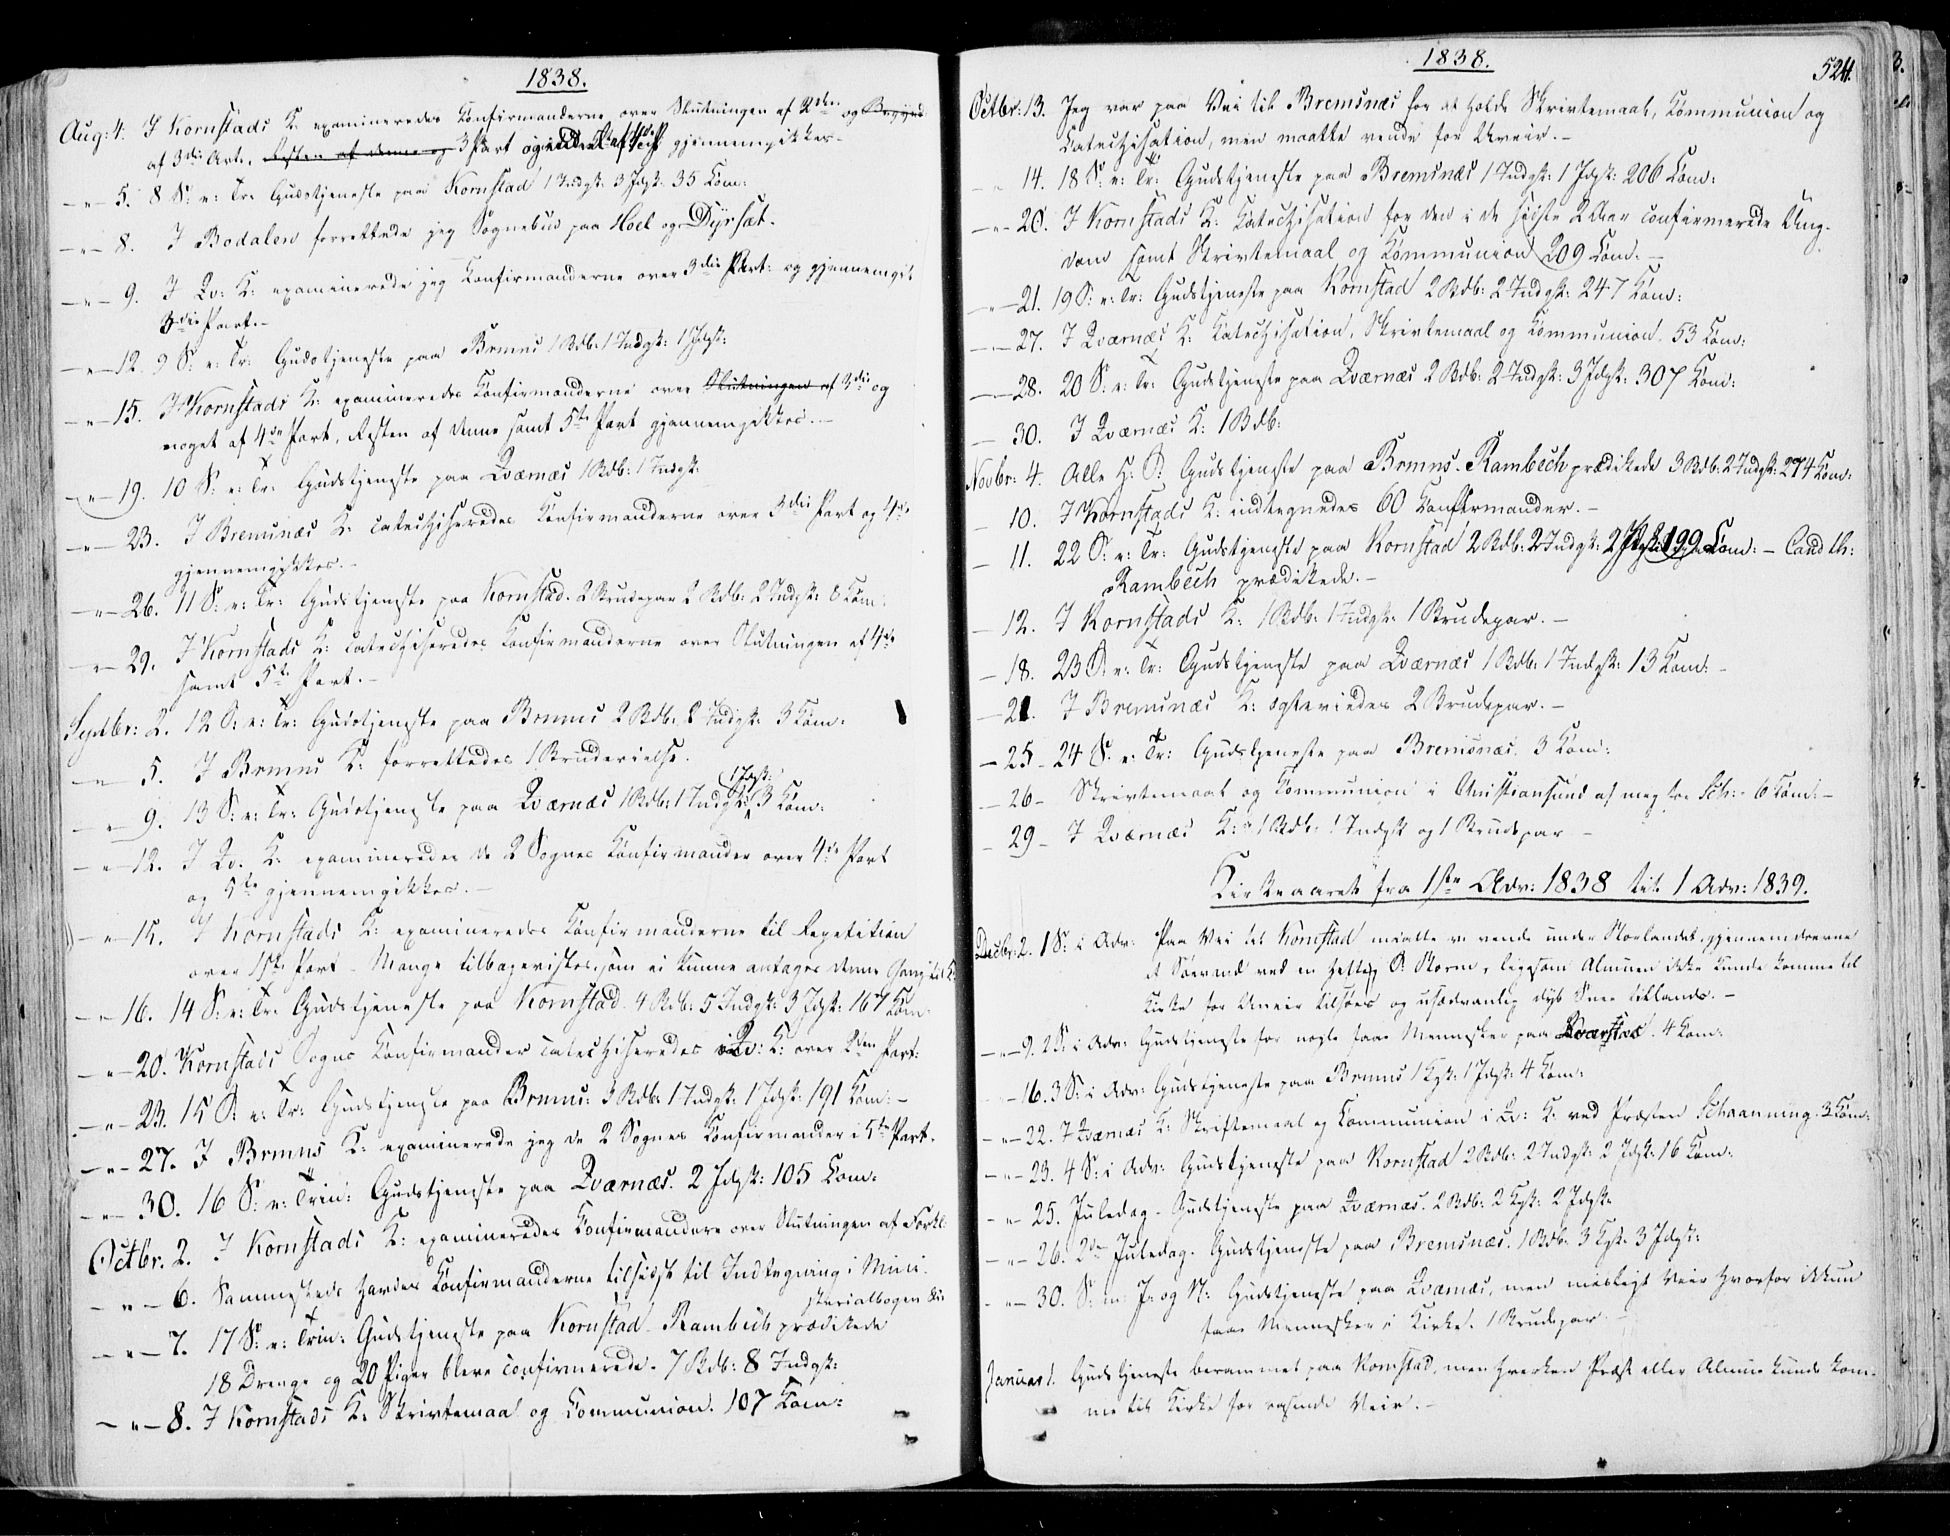 1838.
Aug: 4. I Kornstads K: examineredes Confirmanderne over Slutningen af 2den og Begynd
af 3die Art., Resten af denne og 3 Part og gjennemgikkes.
— " — 5. 8 S: e: Tr: Gudstjeneste paa Kornstad 1 Indgk: 3 Jdgk: 35 Com:
— " — 8. I Bodalen forrettede jeg Sognebud paa Hoel og Dyrsæt.
— " — 9. I Qv: K: examinerede jeg Confirmanderne over 3die Part: og gjennemgik
3die Part.
— " — 12. 9 S: e: Tr: Gudstjeneste paa Brmns 1 Bdb: 1 Indgk: 1 Jdgk:
— " — 15. I Kornstads K: examineredes Confirmanderne over Slutningen af 3die og
noget af 4de Part, Resten af denne samt 5te Part gjennemgikkes. —
— " — 19. 10 S: e: Tr: Gudstjeneste paa Qværnæs 1 Bdb: 1 Indgk:
— " — 23. I Bremsnæs K: catechiseredes Confirmanderne over 3die Part og 4de
gjennemgikkes. —
— " — 26. 11 S: e: Tr: Gudstjeneste paa Kornstad. 2 Brudepar 2 Bdb: 2 Indgk: 8 Com:
— " — 29. I Kornstads K: catechiseredes Confirmanderne over Slutningen af 4de
samt 5te Part. —
Septbr: 2. 12 S: e: Tr: Gudstjeneste paa Brmns 2 Bdb: 2 Indgk: 3 Com:
— " — 5. I Brmns K: forrettedes 1 Brudevielse.
1 Jdgk:
— " — 9. 13 S: e: Tr: Gudstjeneste paa Qværnæs 1 Bdb: 1 Indgk: 3 Com:
— " — 12. I Qv. K: examineredes de 2 Sognes Confirmander over 4de Part
og 5te gjennemgikkes. —
— " — 15. I Kornstads K: examineredes Confirmanderne til Repetition
over 1ste Part — Mange tilbagevistes, som ei kunne antages denne Gang til C:
— " — 16. 14 S: e: Tr: Gudstjeneste paa Kornstad. 4 Bdb: 5 Indgk: 3 Jdgk: 167 Com:
— " — 20. Kornstads Sogns Confirmander catechiseredes i Qv: K: over 2den Part:
— " — 23. 15 S: e: Tr: Gudstjeneste paa Brmns: 3 Bdb: 1 Indgk: 1 Jdgk: 191 Com: —
— " — 27. I Brmns K: examinerede jeg de 2 Sognes Confirmander i 5te Part.
— " — 30. 16 S: e: Trin: Gudstjeneste paa Qværnæs. 2 Jdgk: 105 Com:
Octbr. 2. I Kornstads K: examineredes Confirmandere over Slutningen af Forkl:
— " — 6. Sammesteds hørdes Confirmanderne tilsidst til Indtegning i Mini-
sterialbogen
— " — 7. 17 S: e: Trin: Gudstjeneste paa Kornstad — Rambech prædikede
18 Drenge og 20 Piger bleve confirmerede. 7 Bdb: 8 Indgk:
— " — 8. I Kornstads K: Skrivtemaal og Communion. 107 Com:
1838.
524.
Octbr: 13. Jeg var paa Vei til Bremsnæs for at holde Skrivtemaal, Communion og
Catechisation, men maatte vende for Uveir. —
— " 14. 18 S: e: Tr: Gudstjeneste paa Bremsnæs 1 Indgk: 1 Jdgk: 206 Com:
— " — 20. I Kornstads K: Catechisation for den i de sidste 2 Aar confirmerede Ung-
dom samt Skrivtemaal og Communion 209 Com: —
— " — 21. 19 S: e: Tr: Gudstjeneste paa Kornstad 2 Bdb: 2 Indgk: 247 Com:
— " — 27. I Qværnæs K: Catechisation, Skrivtemaal og Communion. 53 Com:
— " — 28. 20 S: e: Tr: Gudstjeneste paa Qværnæs 2 Bdb: 2 Indgk: 3 Jdgk: 307 Com:
— 30. I Qværnæs K: 1 Bdb:
Novbr: 4. Alle H: D: Gudstjeneste paa Brmns. Rambech prædikede 3 Bdb: 2 Indgk: 274 Com:
— 10. I Kornstads K: indtegnedes 60 Confirmander. —
— 11. 22 S: e: Tr: Gudstjeneste paa Kornstad 2 Bdb: 2 Indgk: 2 Jdgk: 199 Com: — Cand th:
Rambech prædikede. —
— 12. I Kornstads K: 1 Bdb: 1 Indgk: 1 Brudepar. —
— 18. 23 S: e: Tr: Gudstjeneste paa Qværnæs 1 Bdb: 1 Indgk: 13 Com: —
— 21. I Bremsnæs K: ægteviedes 2 Brudepar. —
— 25 — 24 S. e: Tr: Gudstjeneste paa Bremsnæs. 3 Com:
— 26 — Skrivtemaal og Communion i Christiansund af meg for Sch: — 6 Com: —
— 29 — I Qværnæs K: 1 Bdb: 1 Indgk og 1 Brudepar —
Kirkeaaret fra 1ste Adv: 1838 til 1 Adv: 1839.
Decbr: 2. 1 S: i Adv: Paa Vei til Kornstad maatte vi vende under Storlandet, gjennemdrevne
af Søevand ved en heftig S. Storm, ligesom Almuen ikke kunde komme til
Kirke for Uveir tilsøes og usædvanlig dyb Snee tillands. —
— " — 9. 2 S: i Adv: Gudstjeneste for nogle faae Mennesker paa. 4 Com:
— 16. 3 S: i Adv: Gudstjeneste paa Brmns 1 Kgk: 1 Jdgk: 4 Com:
— " — 22. I Qværnæs K: Skriftemaal og Communion i Qv: K: ved Præsten Schaanning. 3 Com:
— " — 23. 4 S: i Adv: Gudstjeneste paa Kornstad 2 Bdb: 2 Indgk: 2 Jdgk: 16 Com:
— " — 25. Juledag — Gudstjeneste paa Qværnæs. 2 Bdb: 2 Kgk: 2 Jdgk:
— " — 26. 2den Juledag. Gudstjeneste paa Bremsnæs. 1 Bdb: 3 Kgk: 3 Jdgk:
— " — 30. S: m: J. og N: Gudstjeneste paa Qværnæs, men misligt Veir hvorfor ikkun
faae Mennesker i Kirke. 1 Brudepar —
Januar 1. Gudstjeneste berammet paa Kornstad, men hverken Præst eller Almue kunde kom-
me til Kirke for rasende Veir. —